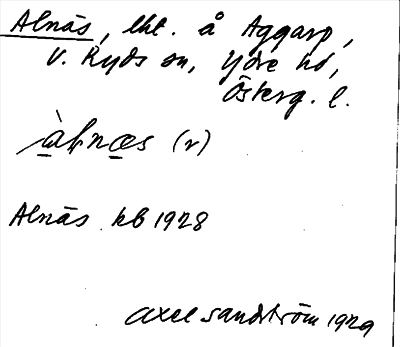 Alnäs, lht. å Aggarp,
V. Ryds sn, Ydre hd,
Österg. l.
àḷnæs (r)
Alnäs kb 1928
Axel Sandström 1929